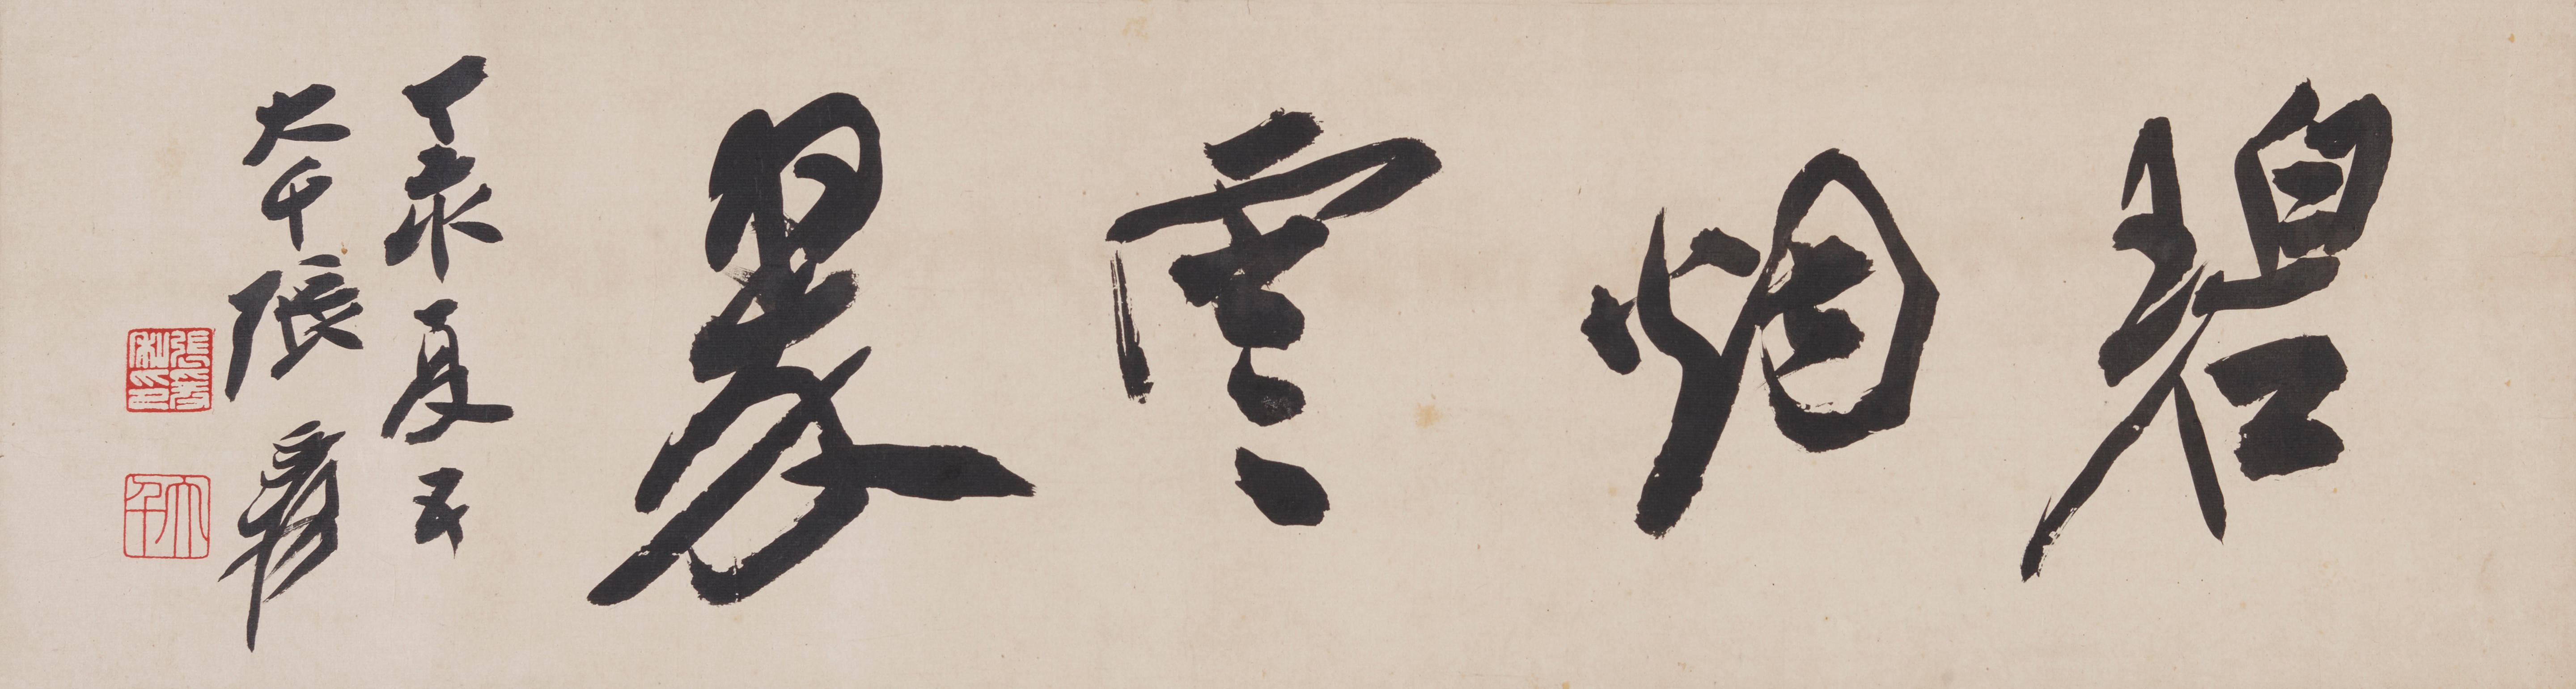 碧烟雲
丁亥夏五
大千張爰
張爰私印
大千